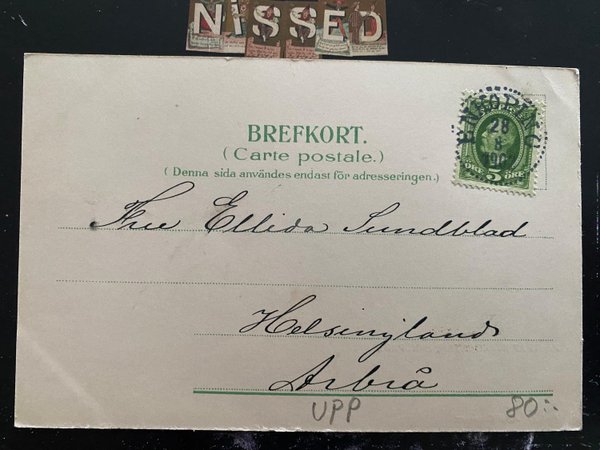 NISSED
BREFKORT.
(Carte postale.)
(Denna sida användes endast för adresseringen.)
ENKÖPING
28
8
ÖRE 5 ÖRE
Fru Ellida Sundblad
Helsingland
Arbrå
UPP
80:-